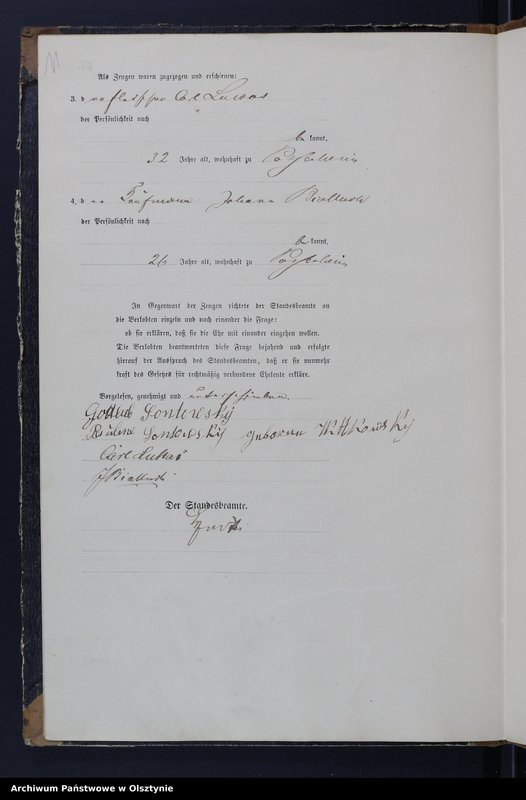 11
Als Zeugen waren zugezogen und erschienen:
3. der Fleischer Carl Lukas
der Persönlichkeit nach
be kannt,
32 Jahre alt, wohnhaft zu
4. der Kaufmann Johann
der Persönlichkeit nach
be kannt,
26 Jahre alt, wohnhaft zu
In Gegenwart der Zeugen richtete der Standesbeamte an
die Verlobten einzeln und nach einander die Frage:
ob sie erklären, daß sie die Ehe mit einander eingehen wollen.
Die Verlobten beantworteten diese Frage bejahend und erfolgte
hierauf der Ausspruch des Standesbeamten, daß er sie nunmehr
kraft des Gesetzes für rechtmäßig verbundene Eheleute erkläre.
Vorgelesen, genehmigt und unterschrieben.
Gottlieb Sontowsky
Pauline Sontowsky geborene Wittkowsky
Carl Lukas
Der Standesbeamte.
Archiwum Państwowe w Olsztynie